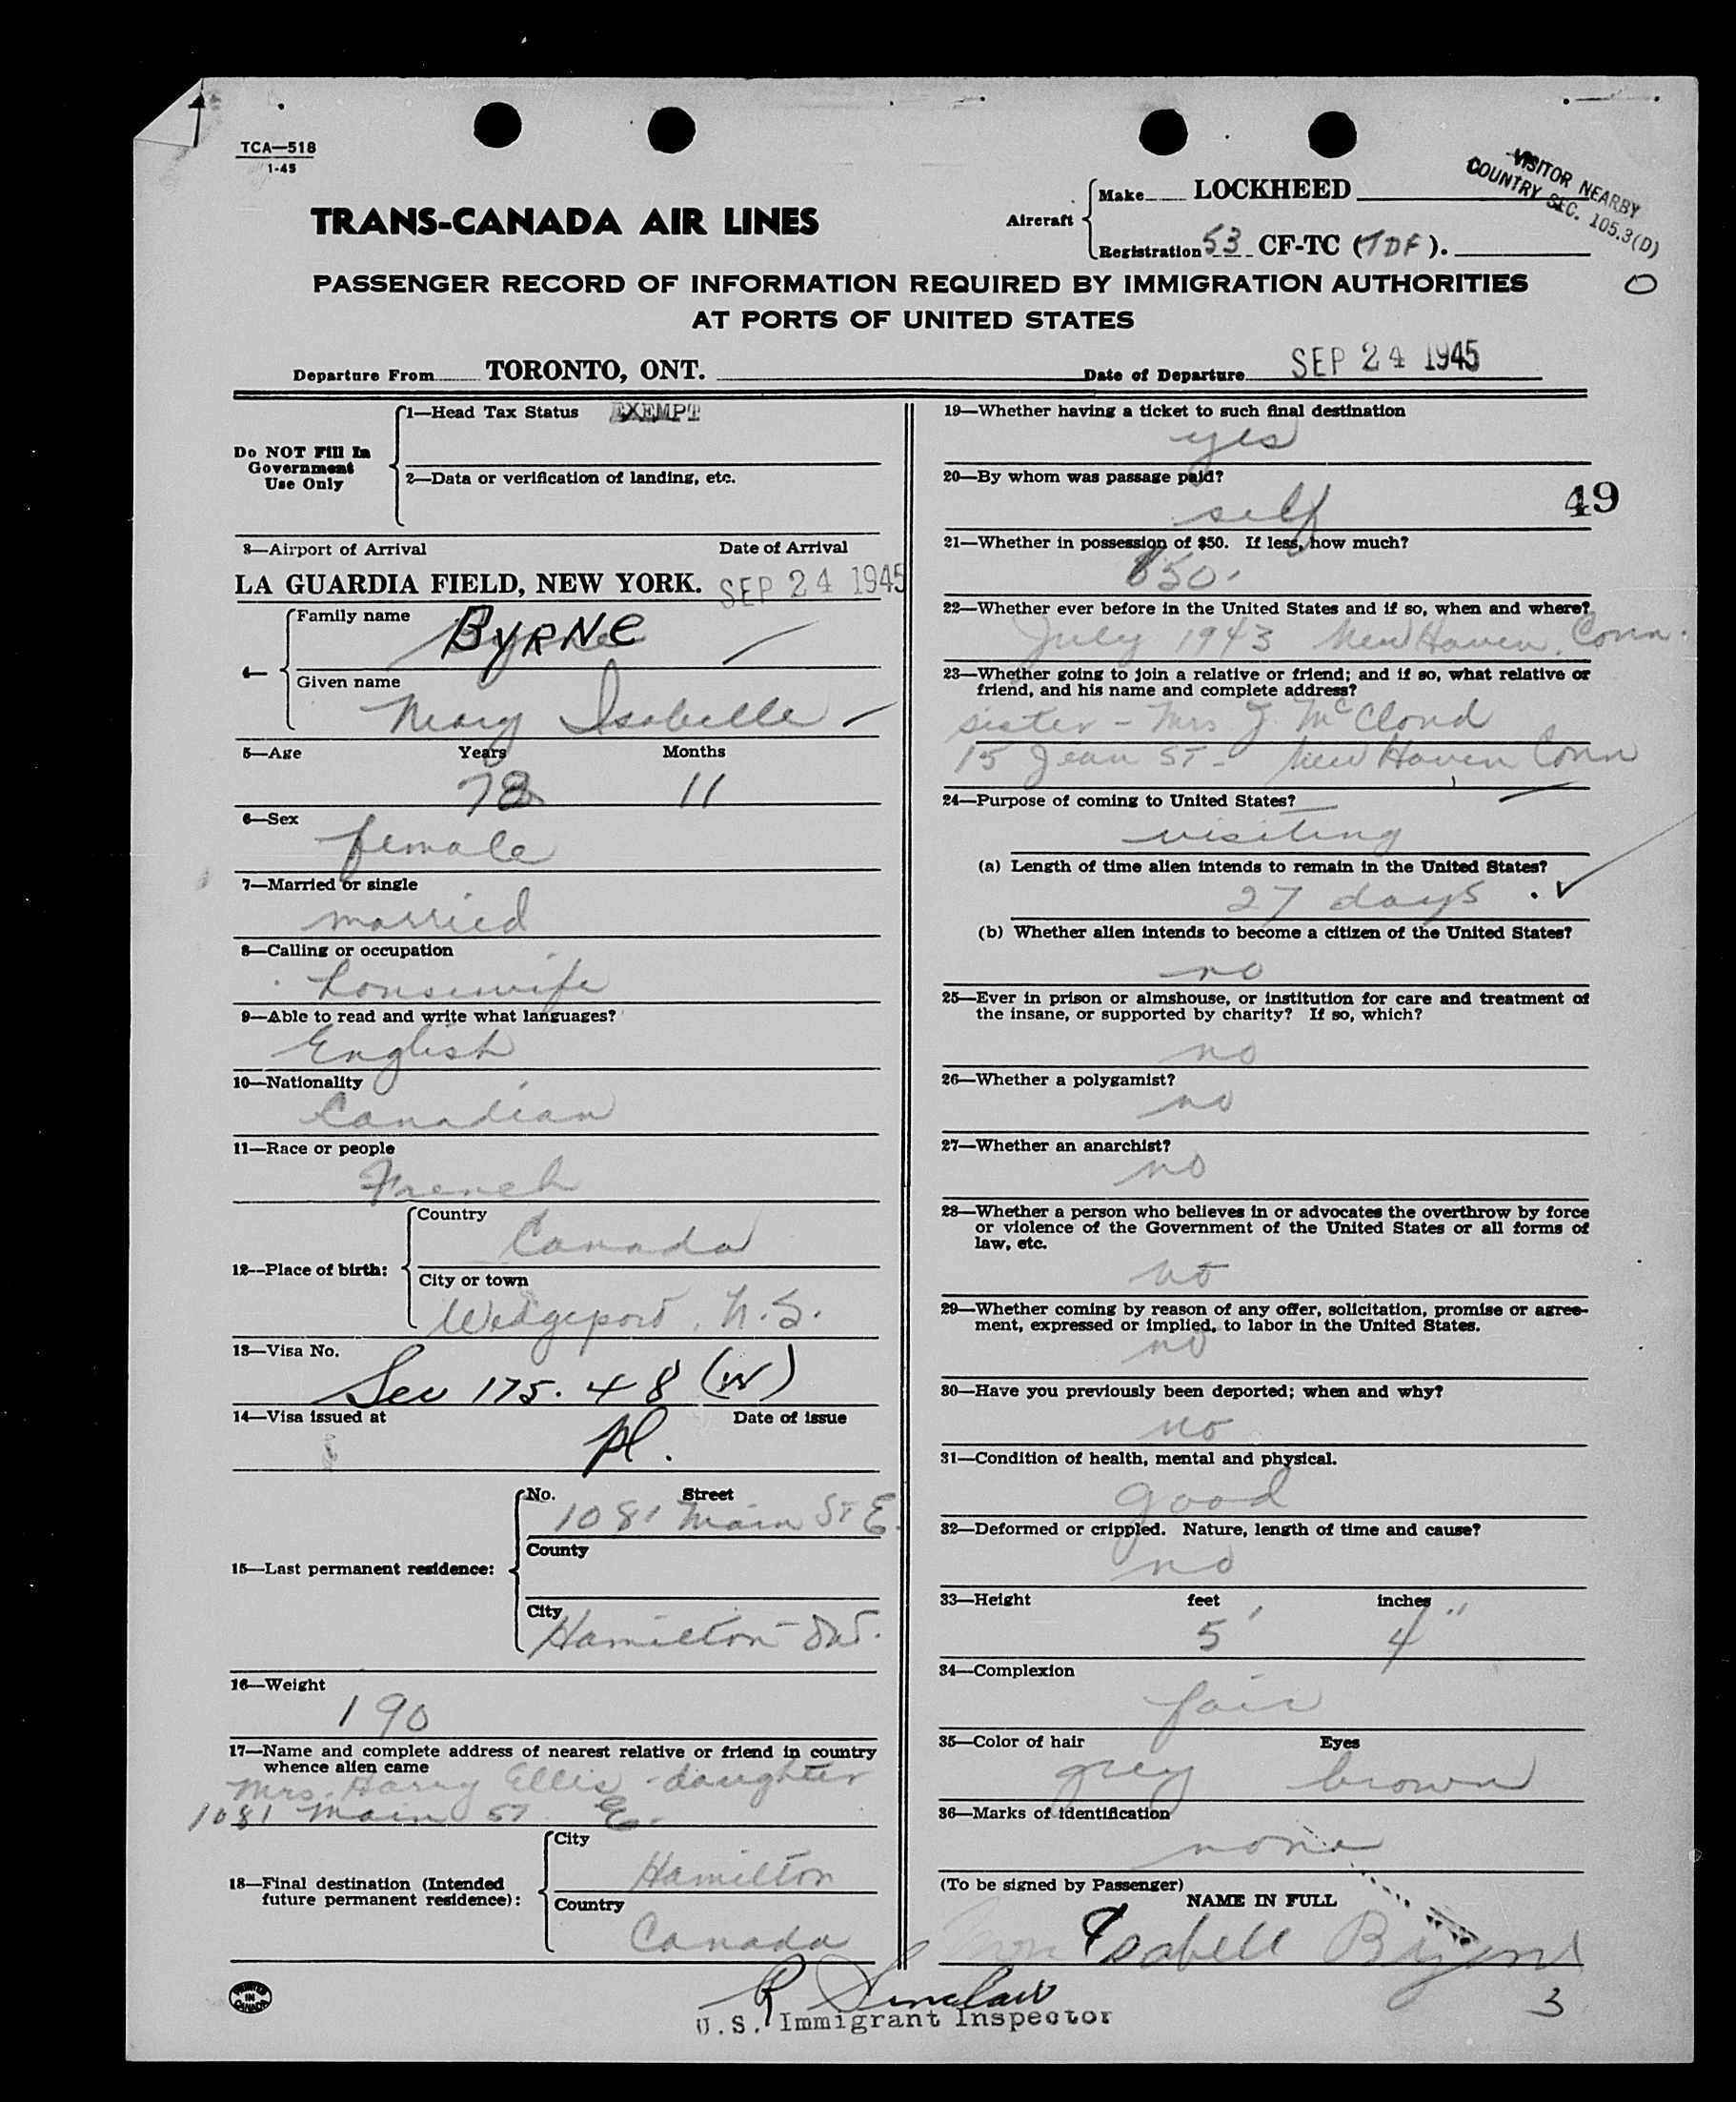 TCA—518
1-45
TRANS-CANADA AIR LINES
Aircraft
Make LOCKHEED
Registration 53 CF-TC (TDF).
VISITOR NEARBY
COUNTRY SEC. 105.3(D)
O
PASSENGER RECORD OF INFORMATION REQUIRED BY IMMIGRATION AUTHORITIES
AT PORTS OF UNITED STATES
Departure From TORONTO, ONT. Date of Departure SEP 24 1945
Do NOT Fill In
Government
Use Only
1—Head Tax Status EXEMPT
2—Data or verification of landing, etc.
3—Airport of Arrival Date of Arrival
LA GUARDIA FIELD, NEW YORK. SEP 24 1945
4— Family name BYRNE
Given name Mary Isabelle
5—Age Years Months
78 11
6—Sex
female
7—Married or single
married
8—Calling or occupation
housewife
9—Able to read and write what languages?
English
10—Nationality
Canadian
11—Race or people
French
12—Place of birth:
Country
Canada
City or town
Wedgeport, N.S.
13—Visa No.
Sec 175.48 (W)
14—Visa issued at Date of issue
15—Last permanent residence:
No. Street
1081 Main St E.
County
City
Hamilton Ont.
16—Weight
190
17—Name and complete address of nearest relative or friend in country
whence alien came
Mrs. Harry Ellis - daughter
1081 Main ST E.
18—Final destination (Intended
future permanent residence):
City
Hamilton
Country
Canada
19—Whether having a ticket to such final destination
yes
20—By whom was passage paid?
self
49
21—Whether in possession of $50. If less, how much?
$50.
22—Whether ever before in the United States and if so, when and where?
July 1943 New Haven, Conn.
23—Whether going to join a relative or friend; and if so, what relative or
friend, and his name and complete address?
sister - Mrs J. McCloud
15 Jean ST - New Haven Conn
24—Purpose of coming to United States?
visiting
(a) Length of time alien intends to remain in the United States?
27 days
(b) Whether alien intends to become a citizen of the United States?
no
25—Ever in prison or almshouse, or institution for care and treatment of
the insane, or supported by charity? If so, which?
no
26—Whether a polygamist?
no
27—Whether an anarchist?
no
28—Whether a person who believes in or advocates the overthrow by force
or violence of the Government of the United States or all forms of
law, etc.
no
29—Whether coming by reason of any offer, solicitation, promise or agree-
ment, expressed or implied, to labor in the United States.
no
30—Have you previously been deported; when and why?
no
31—Condition of health, mental and physical.
good
32—Deformed or crippled. Nature, length of time and cause?
no
33—Height feet inches
5' 4"
34—Complexion
fair
35—Color of hair Eyes
grey brown
36—Marks of identification
none
(To be signed by Passenger)
NAME IN FULL
Isabell Byrne
PRINTED IN CANADA
R Sinclair
U.S. Immigrant Inspector
3